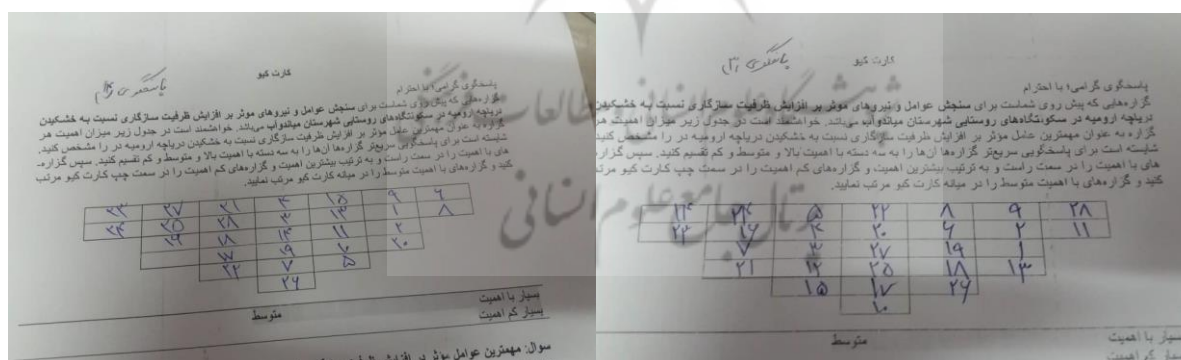 کارت کیو
پاسخگوی (۳)
پاسخگوی گرامی؛ با احترام
گزاره‌هایی که پیش روی شماست برای سنجش عوامل و نیروهای موثر بر افزایش ظرفیت سازگاری نسبت به خشکیدن
دریاچه ارومیه در سکونتگاه‌های روستایی شهرستان میاندوآب می‌باشد. خواهشمند است در جدول زیر میزان اهمیت هر
گزاره به عنوان مهمترین عامل مؤثر بر افزایش ظرفیت سازگاری نسبت به خشکیدن دریاچه ارومیه در را مشخص کنید.
شایسته است برای پاسخگویی سریع‌تر گزاره‌ها آن‌ها را به سه دسته با اهمیت بالا و متوسط و کم تقسیم کنید. سپس گزاره
های با اهمیت را در سمت راست و به ترتیب بیشترین اهمیت و گزاره‌های کم اهمیت را در سمت چپ کارت کیو مرتب
کنید و گزاره‌های با اهمیت متوسط را در میانه کارت کیو مرتب نمایید.
۲۸ ۹ ۸ ۲۲ ۵ ۲۴ ۱۴
۱۱ ۲ ۶ ۲۰ ۴ ۱۶ ۲۳
۱ ۱۹ ۲۷ ۳ ۷
۱۳ ۱۸ ۲۵ ۱۲ ۲۱
۲۶ ۱۷ ۱۵
۱۰
متوسط
بسیار با اهمیت
بسیار کم اهمیت
کارت کیو
پاسخگوی
پاسخگوی گرامی؛ با احترام
گزاره‌هایی که پیش روی شماست برای سنجش عوامل و نیروهای موثر بر افزایش ظرفیت سازگاری نسبت به خشکیدن
دریاچه ارومیه در سکونتگاه‌های روستایی شهرستان میاندوآب می‌باشد. خواهشمند است در جدول زیر میزان اهمیت هر
گزاره به عنوان مهمترین عامل مؤثر بر افزایش ظرفیت سازگاری نسبت به خشکیدن دریاچه ارومیه در را مشخص کنید.
شایسته است برای پاسخگویی سریع‌تر گزاره‌ها آن‌ها را به سه دسته با اهمیت بالا و متوسط و کم تقسیم کنید. سپس گزاره-
های با اهمیت را در سمت راست و به ترتیب بیشترین اهمیت و گزاره‌های کم اهمیت را در سمت چپ کارت کیو مرتب
کنید و گزاره‌های با اهمیت متوسط را در میانه کارت کیو مرتب نمایید.
۶ ۹ ۱۵ ۴ ۲۱ ۲۷ ۲۳
۸ ۱ ۱۳ ۳ ۲۸ ۲۵ ۲۴
۲ ۱۱ ۱۴ ۱۸ ۱۶
۲۰ ۱۰ ۱۹ ۱۷
۵ ۷
۲۶
بسیار با اهمیت
متوسط
بسیار کم اهمیت
سوال: مهمترین عوامل مؤثر بر
پژوهشگاه علوم انسانی و مطالعات فرهنگی
پرتال جامع علوم انسانی